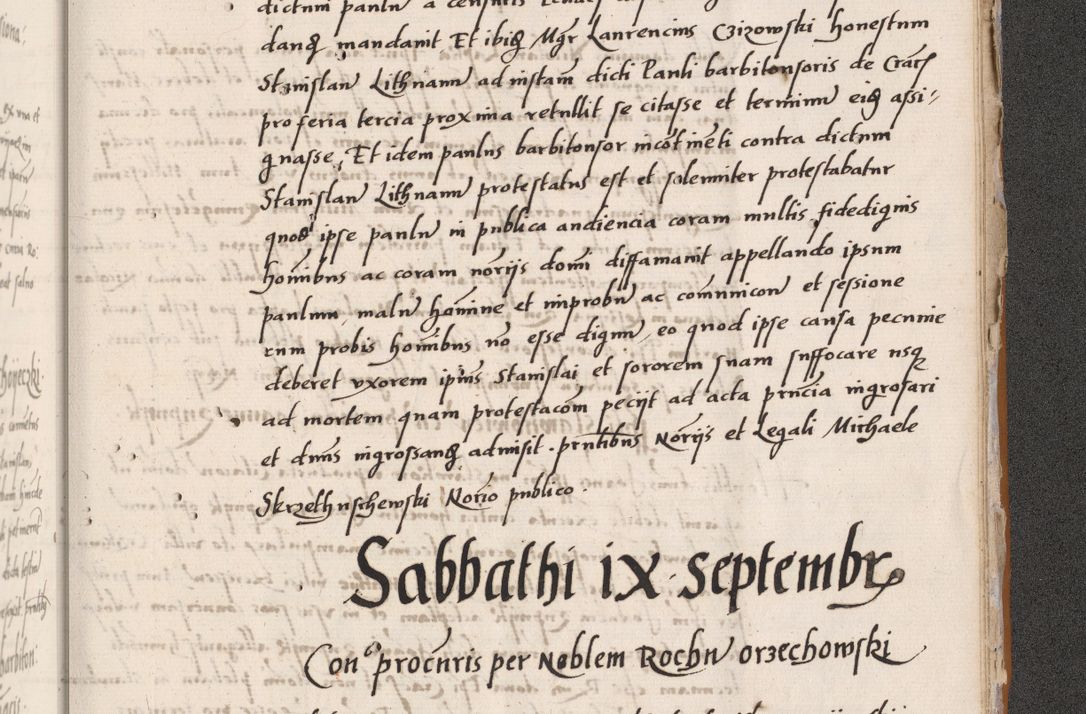 dictum paulum a censuris
dandam mandavit Et ibidem Mgr Laurencius Czizowski honestum
Stanislaum Lithuanum ad instam dicti Pauli barbitonsoris de Crac
pro feria tercia proxima retullit se citasse et terminum eidem assi-
gnasse, Et idem paulus barbitonsor incontinenti contra dictum
Stanislaum Lithuanum protestatus est et solemniter protestabatur
quod ipse paulum in publica audiencia coram multis fidedignis
hominibus ac coram norijs domi diffamavit appellando ipsum
paulum, malum hominem et improbum ac communicon et sessione
cum probis hominibus no esse dignum, eo quod ipse causa pecunie
deberet uxorem ipius Stanislai et sororem suam suffocare usq
ad mortem quam protestacom pecijt ad acta prncia ingrosari
et dnus ingrossandam admisit. prntibus Norijs et Legali Michaele
Skrzethuschewski Norio publico.
Sabbathi ix septembr
Con° procuris per Noblem Rochum orzechowski